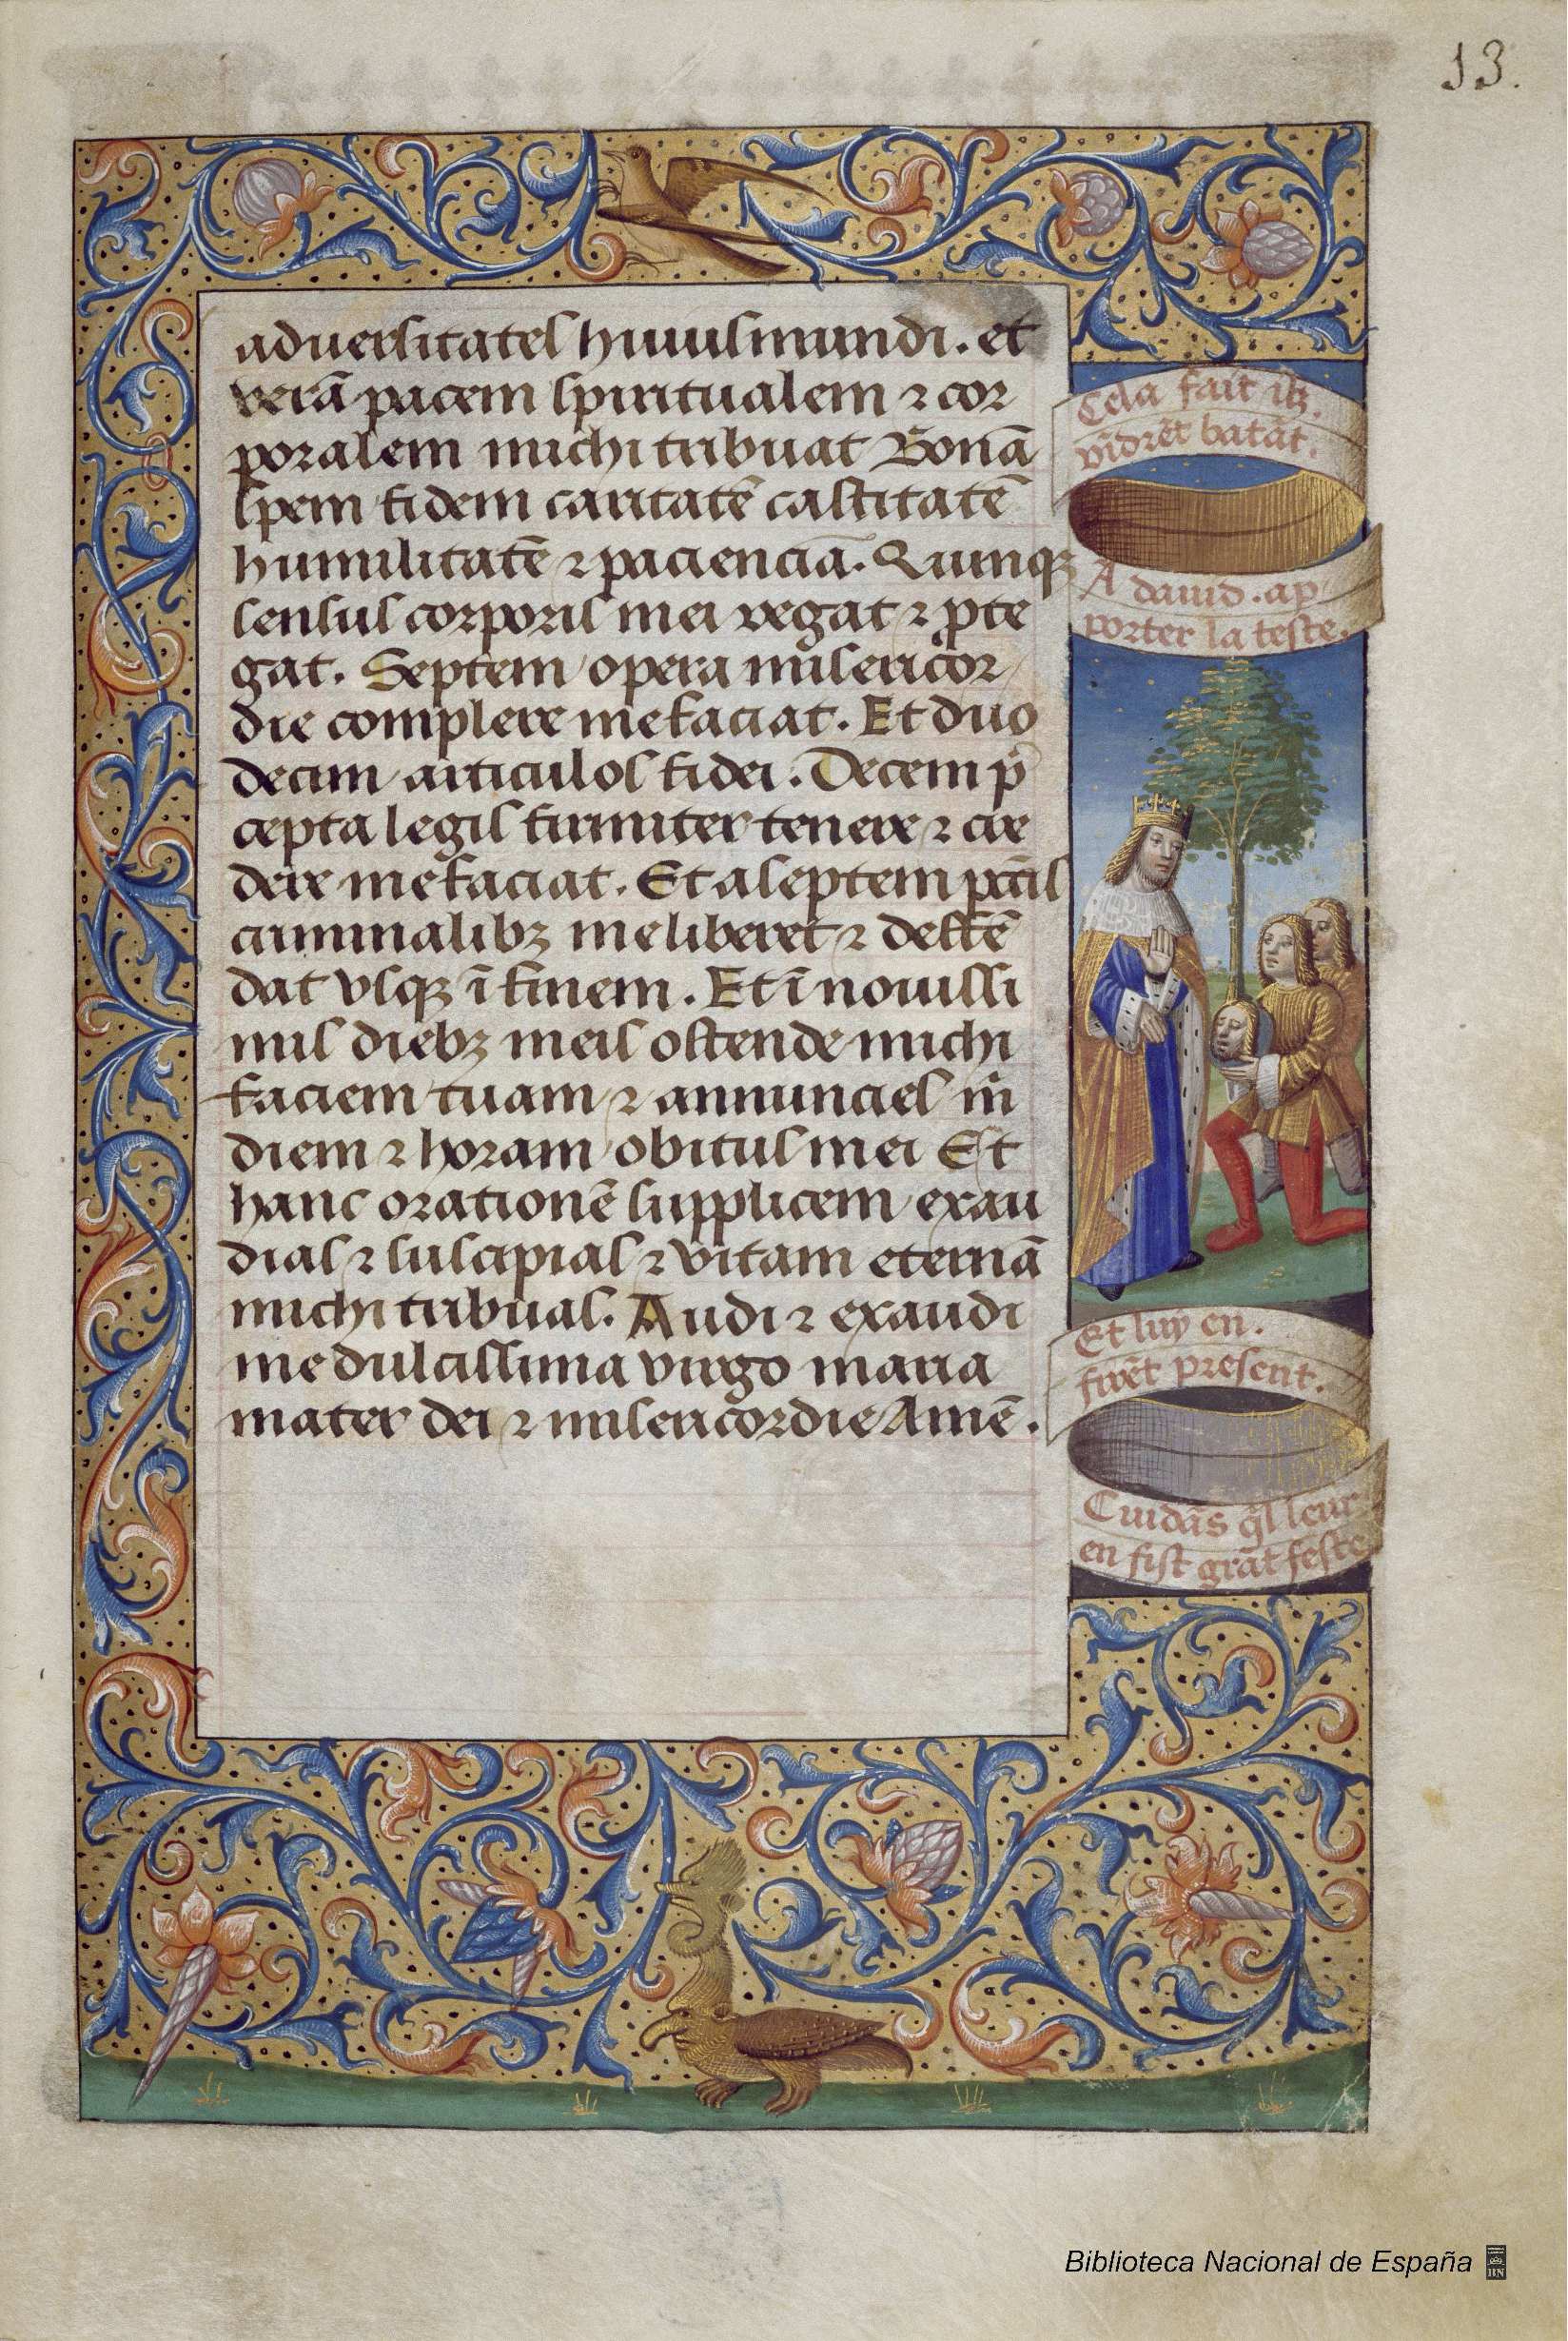 13.
aduersitates huius mundi. et
verā pacem spiritualem ⁊ cor
poralem michi tribuat Bonā
spem fidem caritatē castitatē
humilitatē ⁊ pacienciā. Quinqꝫ
sensus corporis mei regat ⁊ ꝓte
gat. Septem opera misericor
die complere me faciat. Et duo
decim articulos fidei. Decem p̄
cepta legis firmiter tenere ⁊ cre
dere me faciat. Et a septem pctīs
criminalibꝫ me liberet ⁊ deffē
dat vsqꝫ ī finem. Et ī nouissi
mis diebꝫ meis ostende michi
faciem tuam ⁊ annuncies m̄
diem ⁊ horam obitus mei Et
hanc orationē supplicem exau
dias ⁊ suscipias ⁊ vitam eternā
michi tribuas. Audi ⁊ exaudi
me dulcissima virgo maria
mater dei ⁊ misericordie Amē.
Cela fait ilz.
vīdrēt batāt.
A dauid. ap
porter la teste.
Et luy en.
firēt present.
Cuidās q̄l leur
en fist grāt feste
Biblioteca Nacional de España